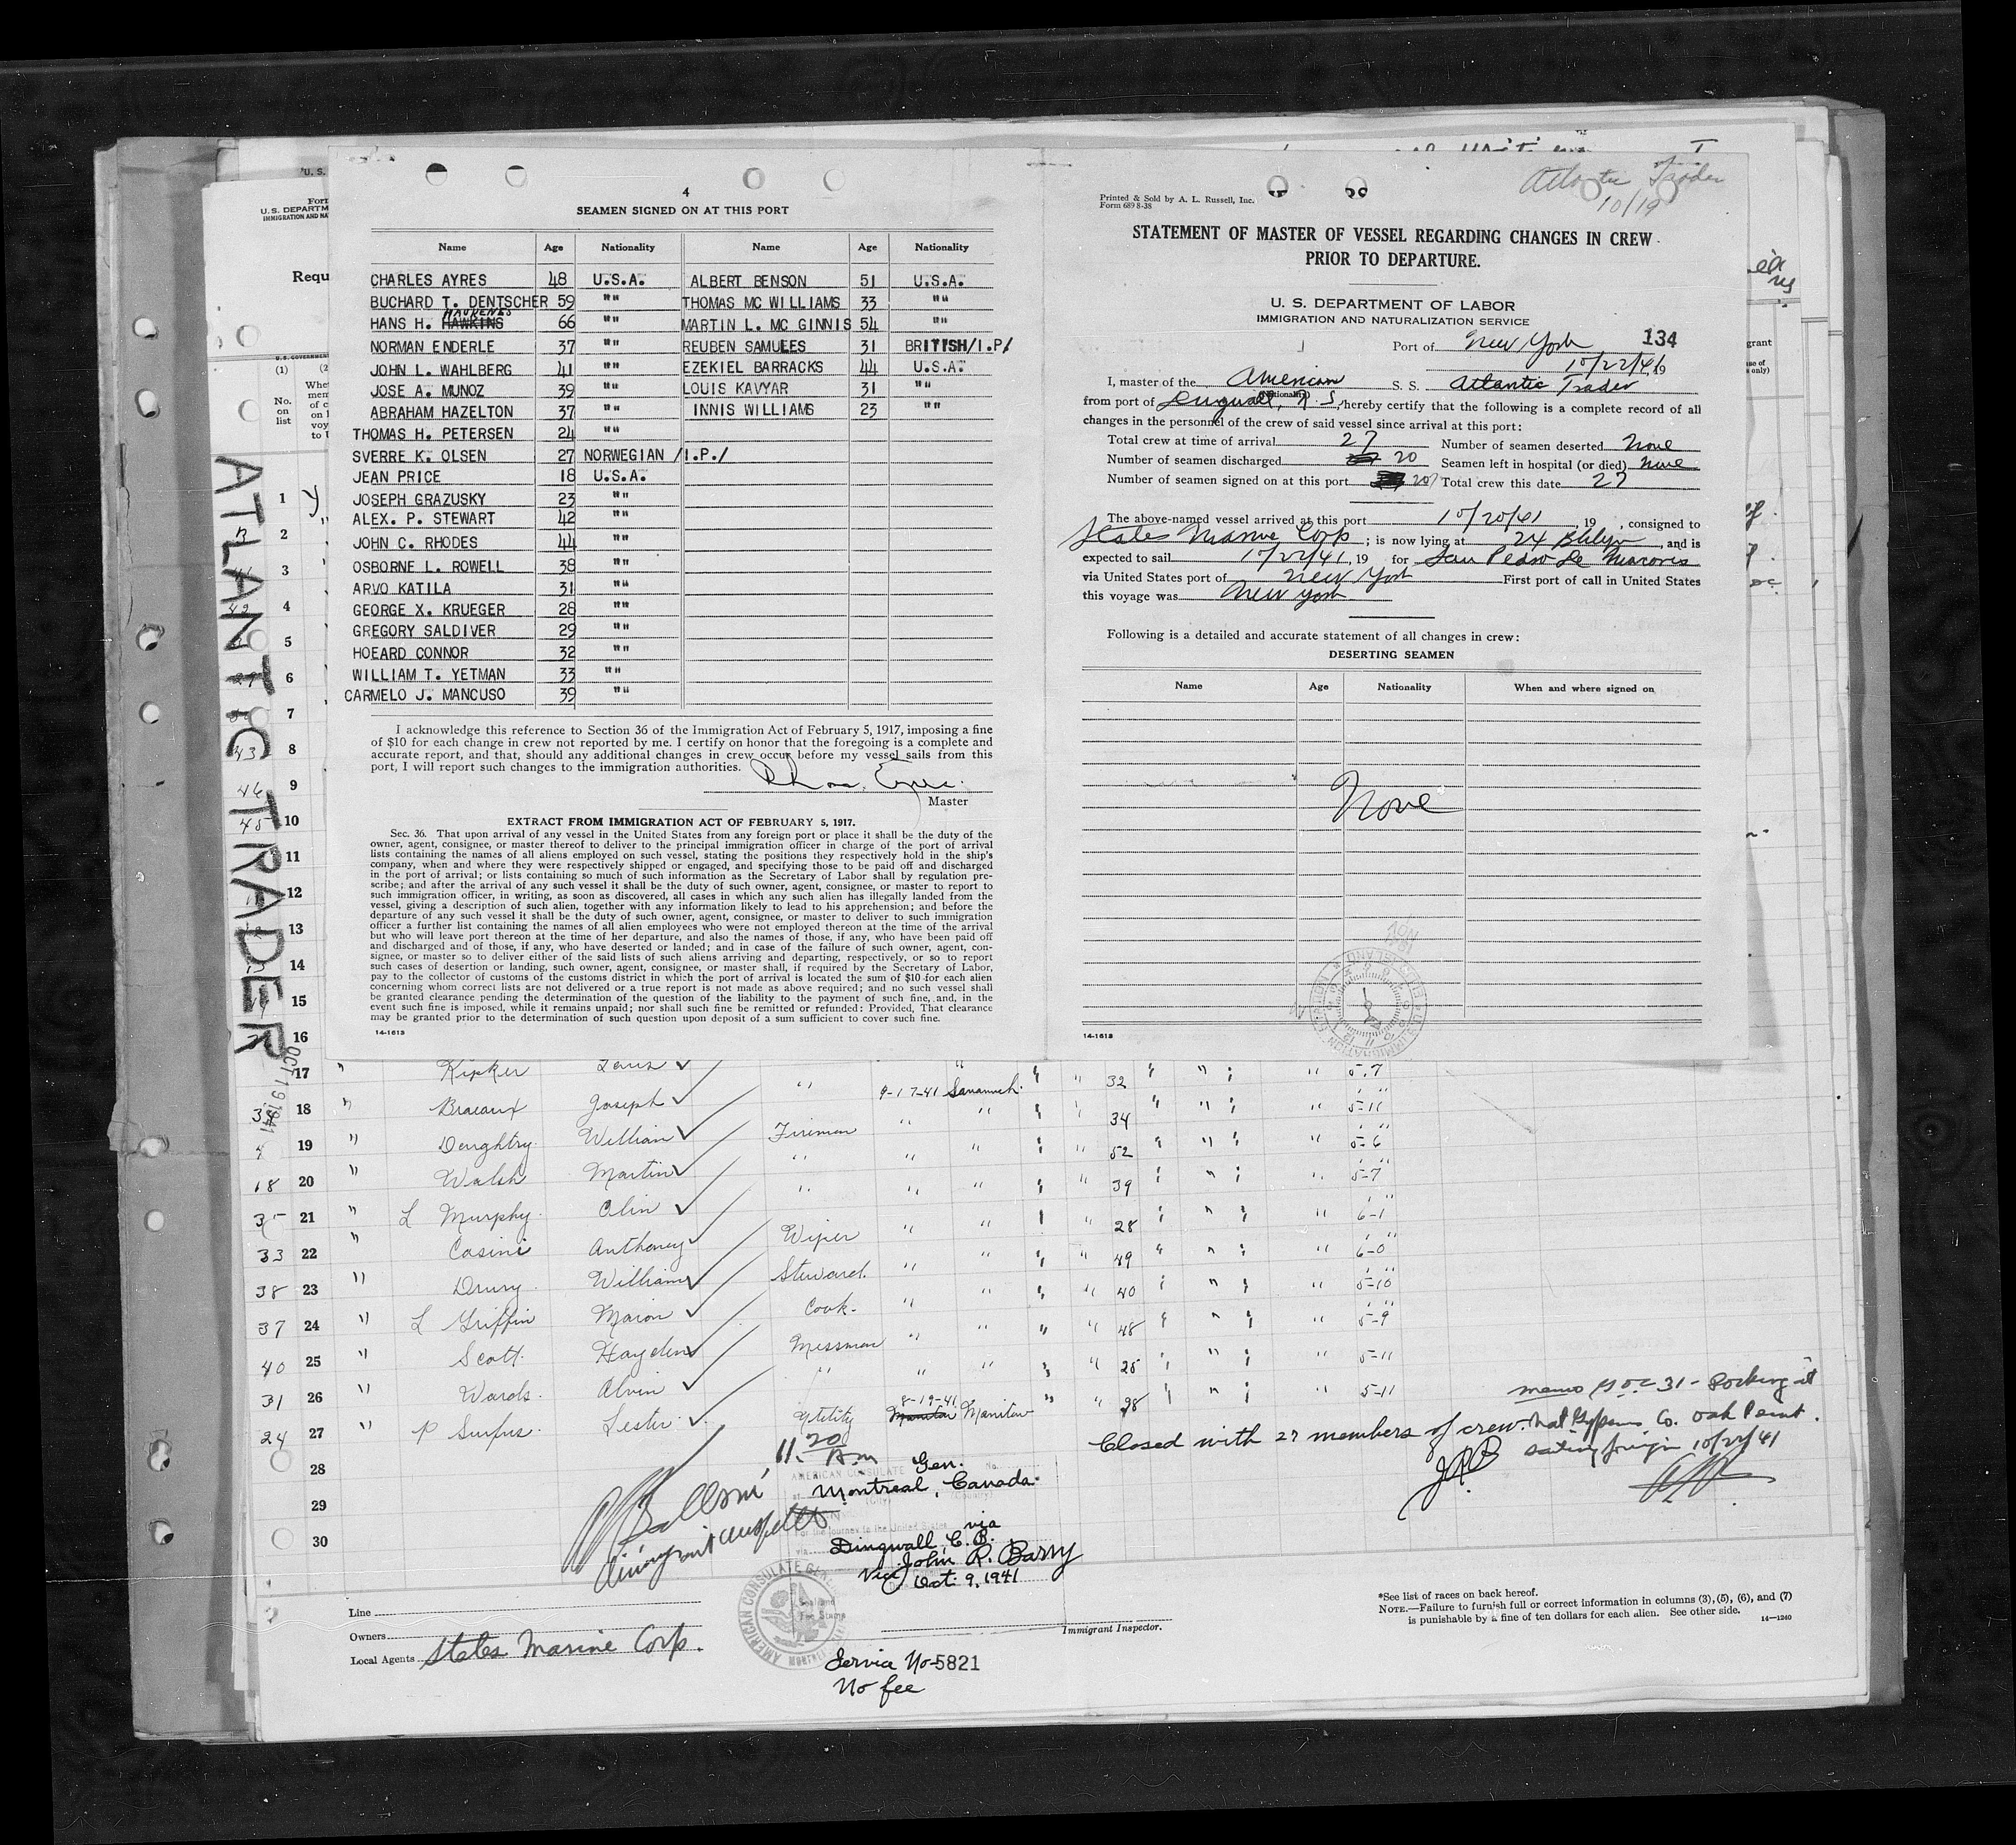 ATLANTIC TRADER
OCT 19 1941
4
SEAMEN SIGNED ON AT THIS PORT
Name Age Nationality Name Age Nationality
CHARLES AYRES 48 U.S.A. ALBERT BENSON 51 U.S.A.
BUCHARD T. DENTSCHER 59 "" THOMAS MC WILLIAMS 33 ""
HAUKENES
HANS H. HAWKINS 66 "" MARTIN L. MC GINNIS 54 ""
NORMAN ENDERLE 37 "" REUBEN SAMULES 31 BRITTSH/I.P/
JOHN L. WAHLBERG 41 "" EZEKIEL BARRACKS 44 U.S.A.
JOSE A. MUNOZ 39 "" LOUIS KAVYAR 31 ""
ABRAHAM HAZELTON 37 "" INNIS WILLIAMS 23 ""
THOMAS H. PETERSEN 24 ""
SVERRE K. OLSEN 27 NORWEGIAN /I.P./
JEAN PRICE 18 U.S.A.
JOSEPH GRAZUSKY 23 ""
ALEX. P. STEWART 42 ""
JOHN C. RHODES 44 ""
OSBORNE L. ROWELL 38 ""
ARVO KATILA 31 ""
GEORGE X. KRUEGER 28 ""
GREGORY SALDIVER 29 ""
HOEARD CONNOR 32 ""
WILLIAM T. YETMAN 33 ""
CARMELO J. MANCUSO 39 ""
I acknowledge this reference to Section 36 of the Immigration Act of February 5, 1917, imposing a fine
of $10 for each change in crew not reported by me. I certify on honor that the foregoing is a complete and
accurate report, and that, should any additional changes in crew occur before my vessel sails from this
port, I will report such changes to the immigration authorities.
Master
EXTRACT FROM IMMIGRATION ACT OF FEBRUARY 5, 1917.
Sec. 36. That upon arrival of any vessel in the United States from any foreign port or place it shall be the duty of the
owner, agent, consignee, or master thereof to deliver to the principal immigration officer in charge of the port of arrival
lists containing the names of all aliens employed on such vessel, stating the positions they respectively hold in the ship's
company, when and where they were respectively shipped or engaged, and specifying those to be paid off and discharged
in the port of arrival; or lists containing so much of such information as the Secretary of Labor shall by regulation pre-
scribe; and after the arrival of any such vessel it shall be the duty of such owner, agent, consignee, or master to report to
such immigration officer, in writing, as soon as discovered, all cases in which any such alien has illegally landed from the
vessel, giving a description of such alien, together with any information likely to lead to his apprehension; and before the
departure of any such vessel it shall be the duty of such owner, agent, consignee, or master to deliver to such immigration
officer a further list containing the names of all alien employees who were not employed thereon at the time of the arrival
but who will leave port thereon at the time of her departure, and also the names of those, if any, who have been paid off
and discharged and of those, if any, who have deserted or landed; and in case of the failure of such owner, agent, con-
signee, or master so to deliver either of the said lists of such aliens arriving and departing, respectively, or so to report
such cases of desertion or landing, such owner, agent, consignee, or master shall, if required by the Secretary of Labor,
pay to the collector of customs of the customs district in which the port of arrival is located the sum of $10 for each alien
concerning whom correct lists are not delivered or a true report is not made as above required; and no such vessel shall
be granted clearance pending the determination of the question of the liability to the payment of such fine, and, in the
event such fine is imposed, while it remains unpaid; nor shall such fine be remitted or refunded: Provided, That clearance
may be granted prior to the determination of such question upon deposit of a sum sufficient to cover such fine.
14-1613
Atlantic Trader
10/19
Printed & Sold by A. L. Russell, Inc.
Form 689 8-38
STATEMENT OF MASTER OF VESSEL REGARDING CHANGES IN CREW
PRIOR TO DEPARTURE.
U. S. DEPARTMENT OF LABOR
IMMIGRATION AND NATURALIZATION SERVICE
134
Port of New York
10/22/41 19
I, master of the American S. S. Atlantic Trader
(Nationality)
from port of Dingwall, N. S., hereby certify that the following is a complete record of all
changes in the personnel of the crew of said vessel since arrival at this port:
Total crew at time of arrival 27 Number of seamen deserted None
Number of seamen discharged 20 Seamen left in hospital (or died) None
Number of seamen signed on at this port 20 Total crew this date 27
The above-named vessel arrived at this port 10/20/41, 19 , consigned to
States Marine Corp ; is now lying at 24 Bklyn, and is
expected to sail 10/22/41, 19 for San Pedro de Macoris
via United States port of New York First port of call in United States
this voyage was New York
Following is a detailed and accurate statement of all changes in crew:
DESERTING SEAMEN
Name Age Nationality When and where signed on
None
14-1613
17 " Kipker Louis " " " 32 " " " " 5-7
18 " Breaux Joseph " 9-17-41 Savannah " " 34 " " " " 5-11
19 " Doughtry William Fireman " " " " 52 " " " " 5-6
18 20 " Walsh Martin " " " " " 39 " " " " 5-7
35 21 " L Murphy Olin " " " " " 28 " " " " 6-1
33 22 " Casini Anthoney Wiper " " " " 49 " " " " 6-0
38 23 " Drury William Steward " " " " 40 " " " " 5-10
37 24 " L Griffin Marion Cook " " " " 48 " " " " 5-9
40 25 " Scott Hayden Messman " " " " 25 " " " " 5-11
31 26 " Wards Alvin " " " " " 28 " " " " 5-11
24 27 " P Surfus Lester Utility 8-19-41 Manitow
28
29
30
Closed with 27 members of crew.
sailing foreign 10/22/41
11.20 A.m
AMERICAN CONSULATE Gen.
Montreal, Canada
For the journey to the United States
via
Dingwall, C. B.
John R. Barry
Vice
Oct. 9, 1941
Immigrant Inspector
Line
Owners
Local Agents States Marine Corp.
Immigrant Inspector.
Service No-5821
No fee
*See list of races on back hereof.
NOTE.—Failure to furnish full or correct information in columns (3), (5), (6), and (7)
is punishable by a fine of ten dollars for each alien. See other side. 14—1240